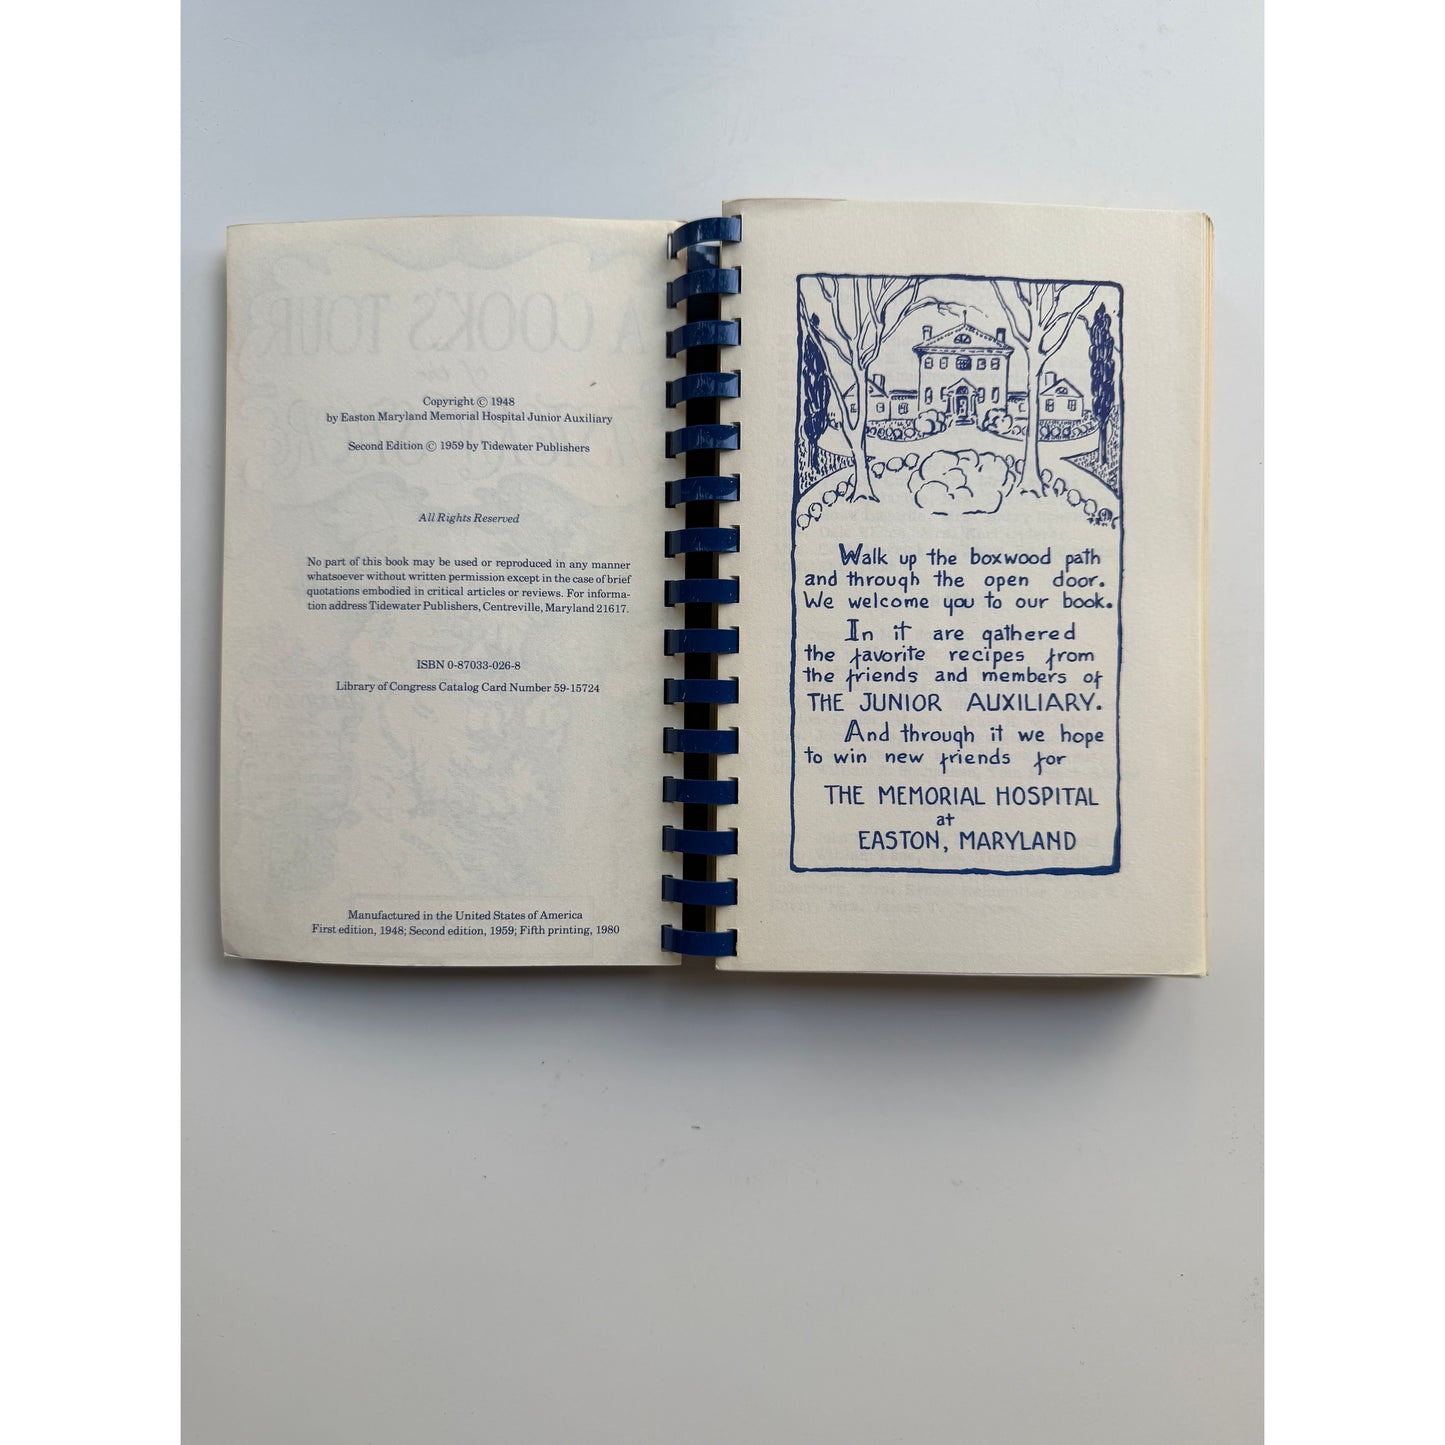 Copyright © 1948
by Easton Maryland Memorial Hospital Junior Auxiliary
Second Edition © 1959 by Tidewater Publishers
All Rights Reserved
No part of this book may be used or reproduced in any manner
whatsoever without written permission except in the case of brief
quotations embodied in critical articles or reviews. For informa-
tion address Tidewater Publishers, Centreville, Maryland 21617.
ISBN 0-87033-026-8
Library of Congress Catalog Card Number 59-15724
Manufactured in the United States of America
First edition, 1948; Second edition, 1959; Fifth printing, 1980
Walk up the boxwood path
and through the open door.
We welcome you to our book.
In it are gathered
the favorite recipes from
the friends and members of
THE JUNIOR AUXILIARY.
And through it we hope
to win new friends for
THE MEMORIAL HOSPITAL
at
EASTON, MARYLAND